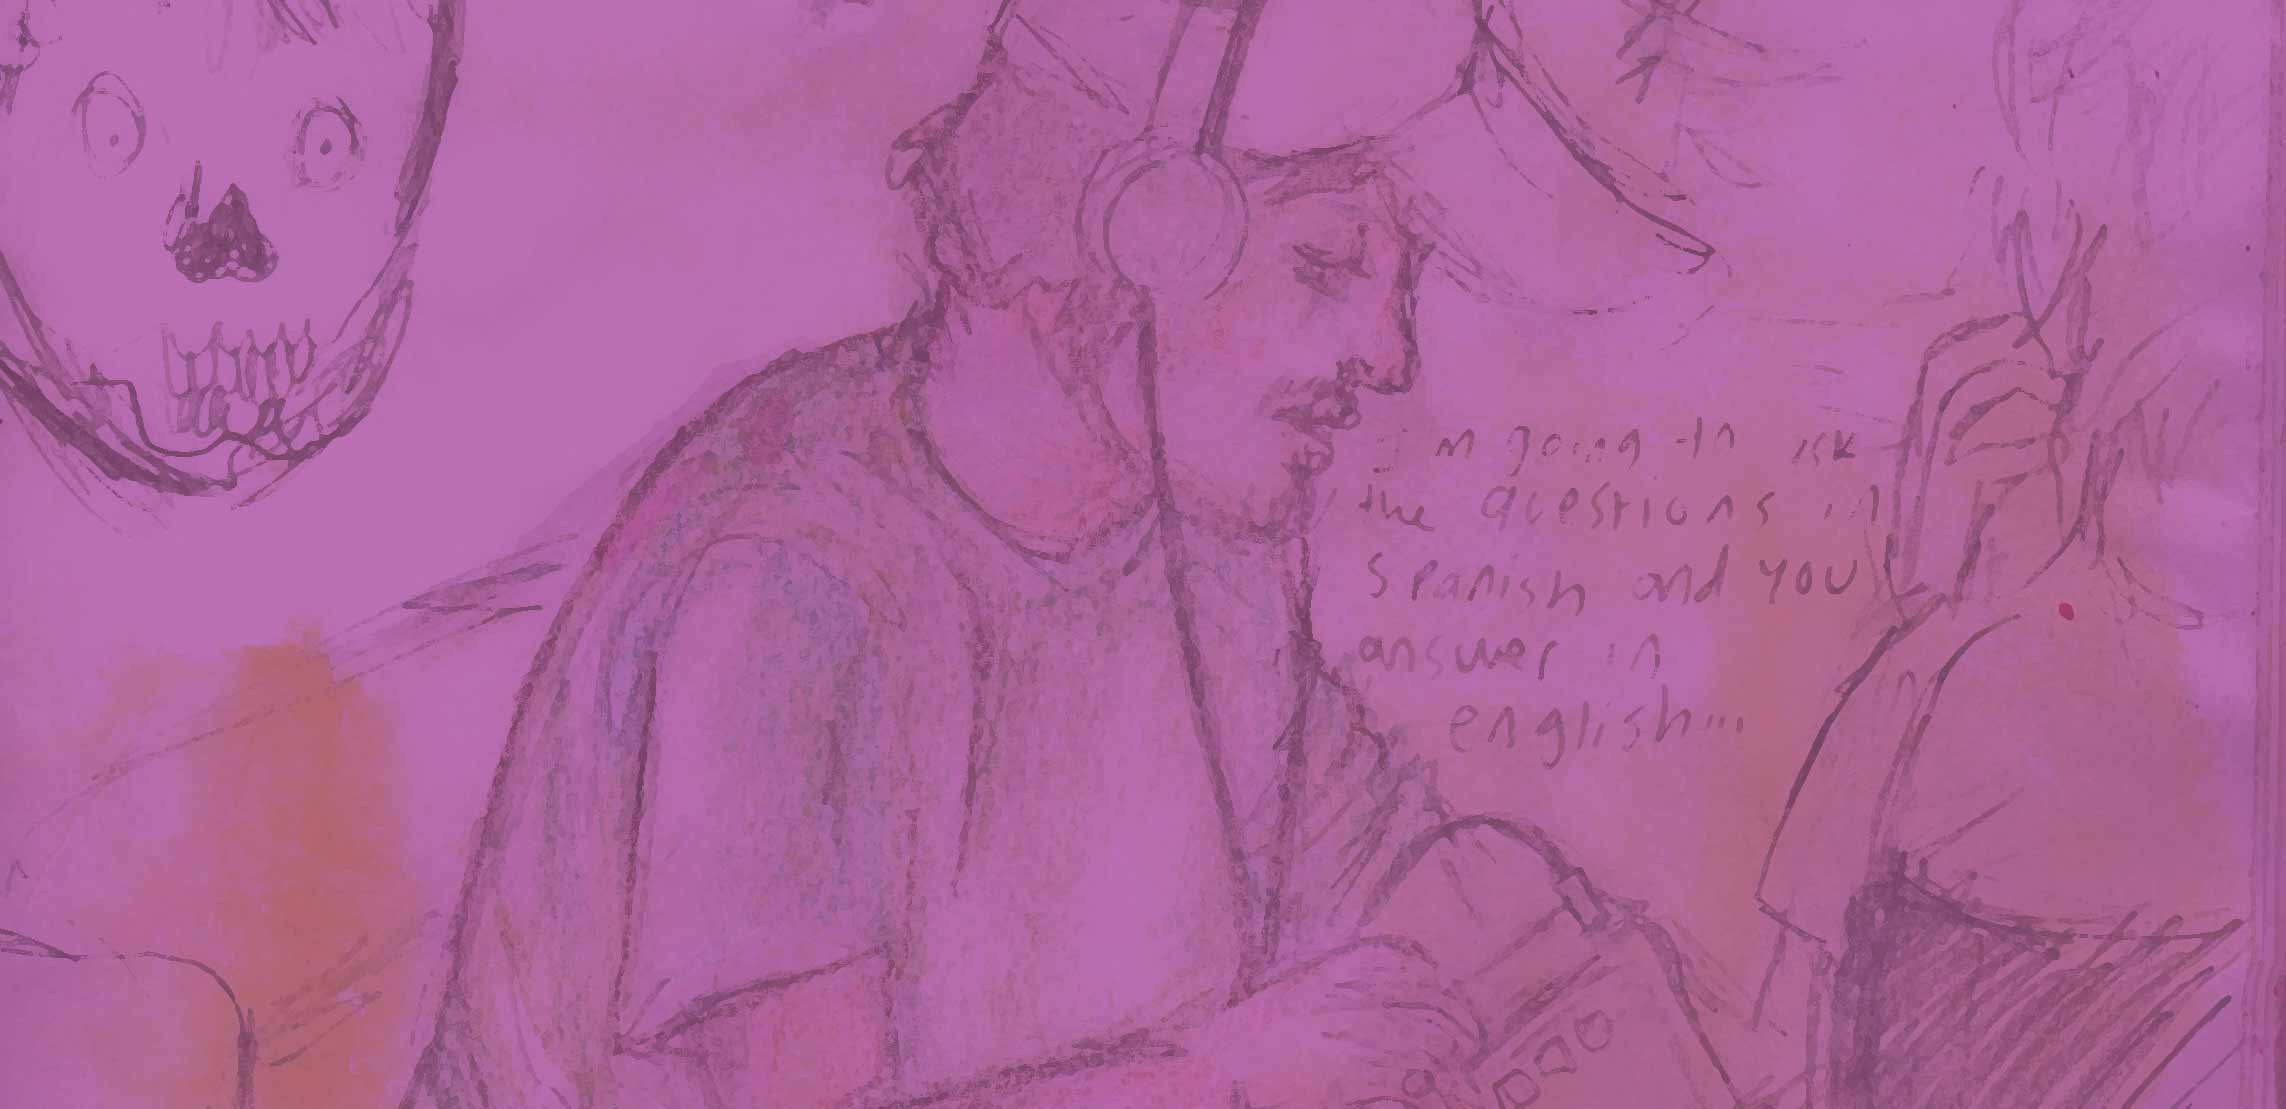 I'm going to ask
the questions in
Spanish and you
answer in
english...